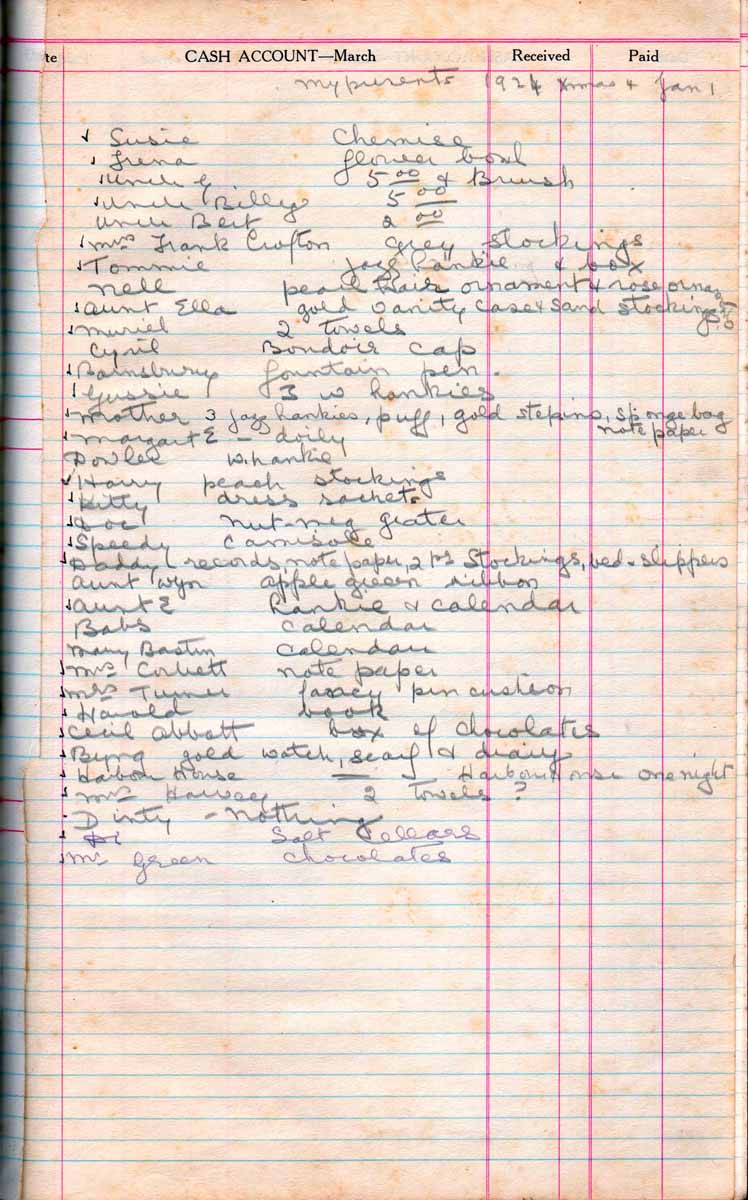 te CASH ACCOUNT—March Received Paid
my presents 1924 Xmas & Jan 1
Susie Chemise
Irena flower bowl
Uncle G 5 00 & Brush
Uncle Billy 5 00
Uncle Bert 2 00
Mrs Frank Crofton grey stockings
Tommie jazz hankie & box
Nell pearl hair ornament & rose
Aunt Ella gold vanity case & sand stockings
Muriel 2 Towels
Cyril Boudoir cap
Bainsbury fountain pen.
Gussie 3 w hankies
Mother 3 jazz hankies, puff, gold stepins, sponge bag
note paper
Margaret E - doily
Dowlee w. hankie
Harry peach stockings
Kitty dress sachets
Doc nut-meg grater
Speedy Camisole
Daddy records, note paper, 2 prs Stockings, bed-slippers
Aunt Wyn apple green ribbon
Aunt E hankie & calendar
Babs calendar
Mary Bastin calendar
Mrs Corbett note paper
Mrs Turner fancy pin cushion
Harold book
Cecil Abbott box of chocolates
Byng gold watch, scarf & diary
Harbour House — one night
Mrs Harvey 2 Towels ?
Dinty - nothing
Di Salt Cellars
Mrs Green Chocolates